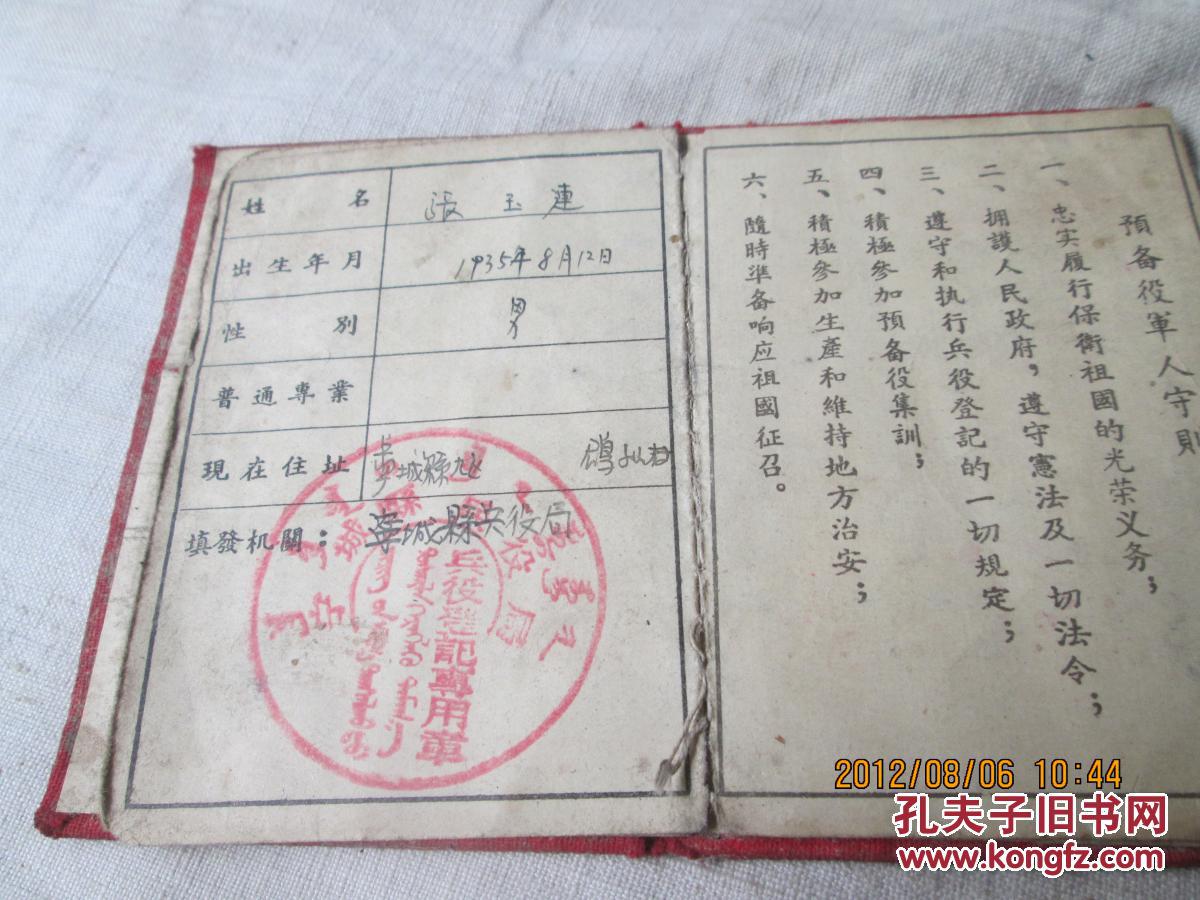 姓名 張玉連
出生年月 1935年8月12日
性別 男
普通專業
現在住址 城縣
填發机關：寧城縣兵役局
城縣
兵役局
兵役登記專用章
預备役軍人守則
一、忠实履行保衛祖國的光荣义务；
二、拥護人民政府，遵守憲法及一切法令；
三、遵守和执行兵役登記的一切規定；
四、積極參加預备役集訓；
五、積極參加生產和維持地方治安；
六、隨時準备响应祖國征召。
2012/08/06 10:44
孔夫子旧书网
www.kongfz.com